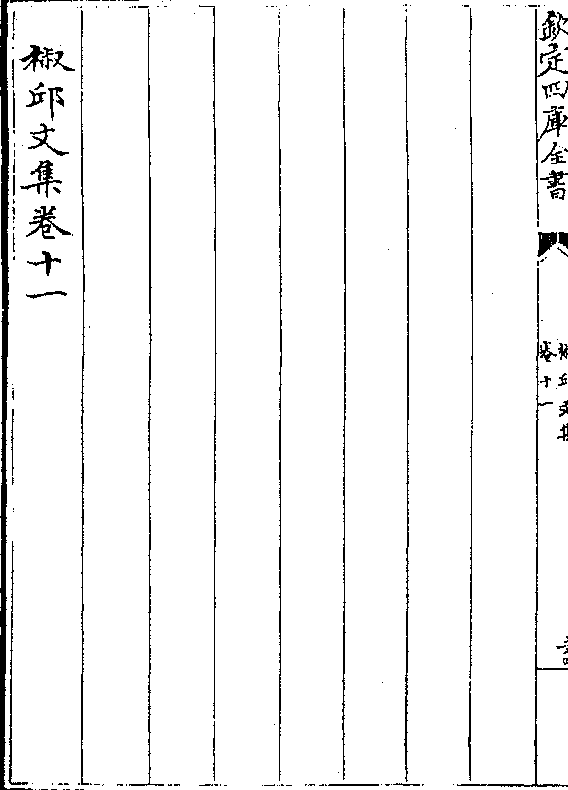 欽定四庫全書
椒邱文集
卷十一
椒邱文集卷十一